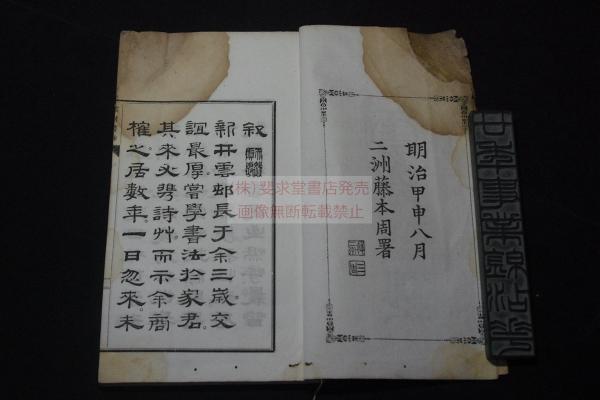 明治甲申八月
二洲藤本周署
叙
新井雲邨長于余三歳交
誼最厚嘗學書法於家君
其来必携詩艸而示余商
榷之居数年一日忽来未
(株)斐求堂書店発売
画像無断転載禁止